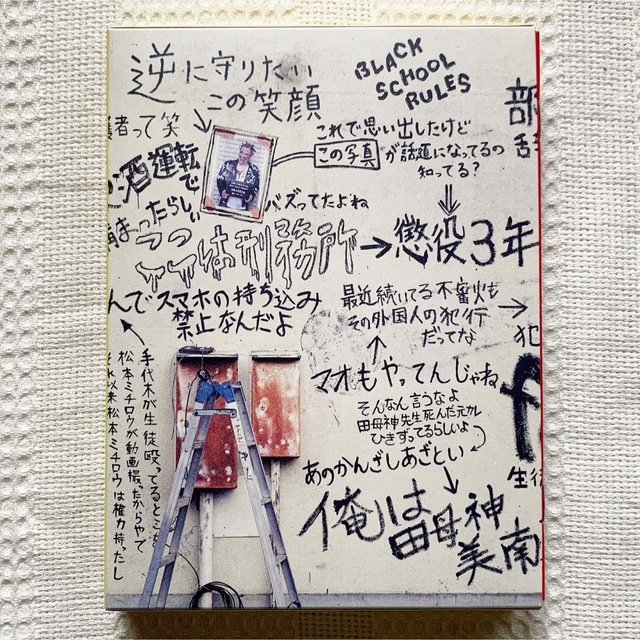 逆に守りたい
この笑顔
BLACK
SCHOOL
RULES
部
者って笑
酒運転で
まったらしい
これで思い出したけど
この写真が話題になってるの
知ってる?
バズってたよね
ココは刑務所→懲役3年
んでスマホの持ち込み
禁止なんだよ
最近続いてる不審火も
その外国人の犯行
だってな
犯
マオもやってんじゃね
そんなん言うなよ
田母神先生死んだ元カレ
ひきずってるらしいよ
あのかんざしあざとい
生徒
俺は
田母神
美南
手代木が生徒殴ってるとこを
松本ミチロウが動画撮ったからやで
それ以来松本ミチロウは権力持ったし